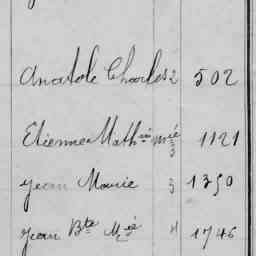 Anatole Charles 2 502
Etienne Math mié 3 1121
Jean Marie 3 1350
Jean Bte Mié 4 1746